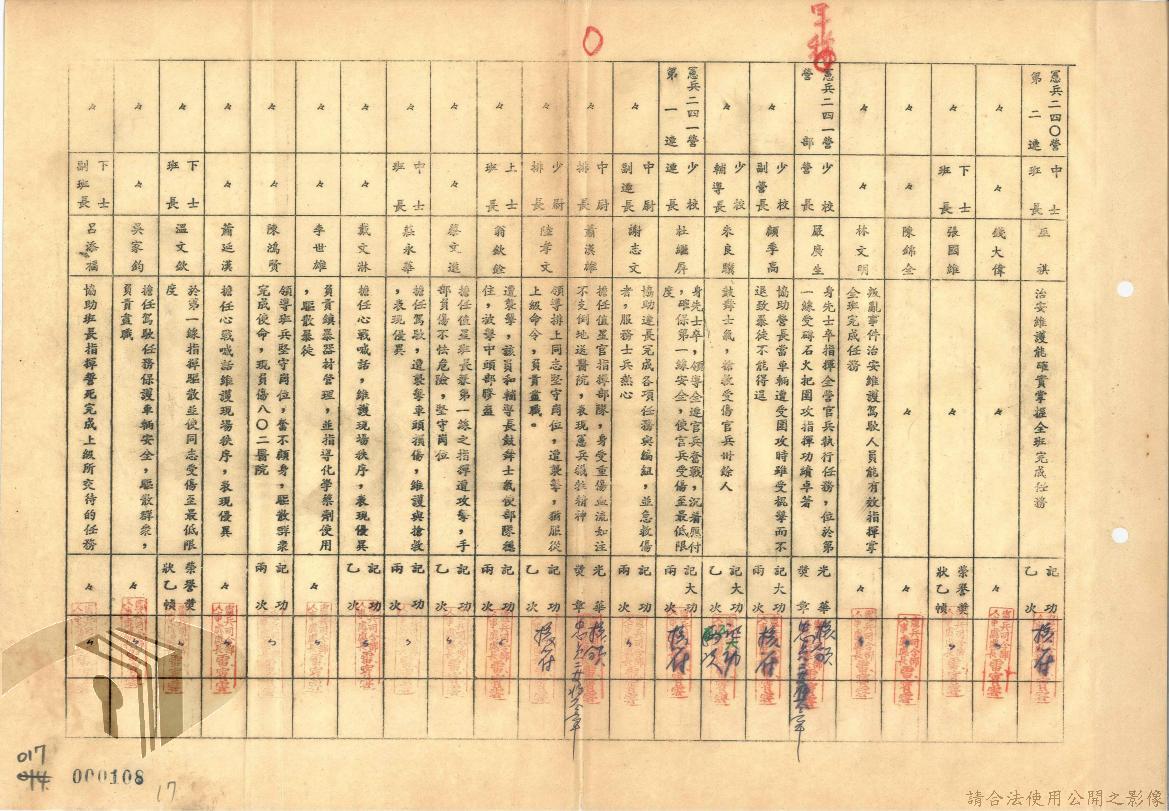 憲兵二四〇營第二連
中士班長
巫祺
治安維護能確實掌握全班完成任務
記功乙次
核符
〃
〃
錢大偉
〃
〃
〃
〃
下士班長
張國維
〃
榮譽獎狀乙幀
〃
〃
〃
陳錦全
〃
〃
〃
〃
〃
林文明
叛亂事件治安維護駕駛人員能有效指揮掌
全班完成任務
〃
〃
憲兵二四一營營部
少校營長
嚴廣生
身先士卒指揮全營官兵執行任務,位於第
一線受磚石火把圍攻指揮功績卓著
光華獎章
核頒
〃
少校副營長
顏季高
協助營長當車輛遭受圍攻時雖受棍擊而不
退致暴徒不能得逞
記大功兩次
核符
〃
少校輔導長
朱良驥
鼓舞士氣,搶救受傷官兵卅餘人
記大功乙次
憲兵二四一營第一連
少校連長
杜繼屏
身先士卒,領導全連官兵奮戰,沉着應付
,確保第一線安全,使官兵受傷至最低限
度
記大功兩次
核符
〃
中尉副連長
謝志文
協助連長完成各項任務與編組,並急救傷
者,服務士兵熱心
記功兩次
〃
〃
中尉排長
蕭漢雄
擔任值星官指揮部隊,身受重傷血流如注
不支倒地送醫院,表現憲兵犧牲精神
光華獎章
核頒
〃
少尉排長
陸孝文
領導排上同志堅守崗位,遭襲擊,猶服從
上級命令,負責盡職。
記功乙次
核符
〃
上士班長
翁欽銓
遭襲擊,該員和輔導長鼓舞士氣使部隊穩
住,被擊中頭部膠盔
記功兩次
〃
〃
〃
蔡文進
擔任值星班長於第一線之指揮遭攻擊,手
部負傷不怯危險,堅守崗位
記功乙次
〃
〃
中士班長
莊永華
擔任駕駛,遭襲擊車頭損傷,維護與搶救
,表現優異
記功兩次
〃
〃
〃
戴文淋
擔任心戰喊話,維護現場秩序,表現優異
記功乙次
〃
〃
〃
李世雄
負責鎮暴器材管理,並指導化學藥劑使用
,驅散暴徒
〃
〃
〃
〃
陳鴻賢
領導班兵堅守崗位,奮不顧身,驅散群衆
完成使命,現負傷八〇二醫院
記功兩次
〃
〃
〃
蕭延漢
擔任心戰喊話維護現場秩序,表現優異
〃
〃
〃
下士班長
溫文欽
於第一線指揮驅散並使同志受傷至最低限
度
榮譽獎狀乙幀
〃
〃
〃
吳家鈞
擔任駕駛任務保護車輛安全,驅散群衆,
負責盡職
〃
〃
〃
下士副班長
呂添福
協助班長指揮誓死完成上級所交待的任務
〃
〃
017
000108
17
請合法使用公開之影像